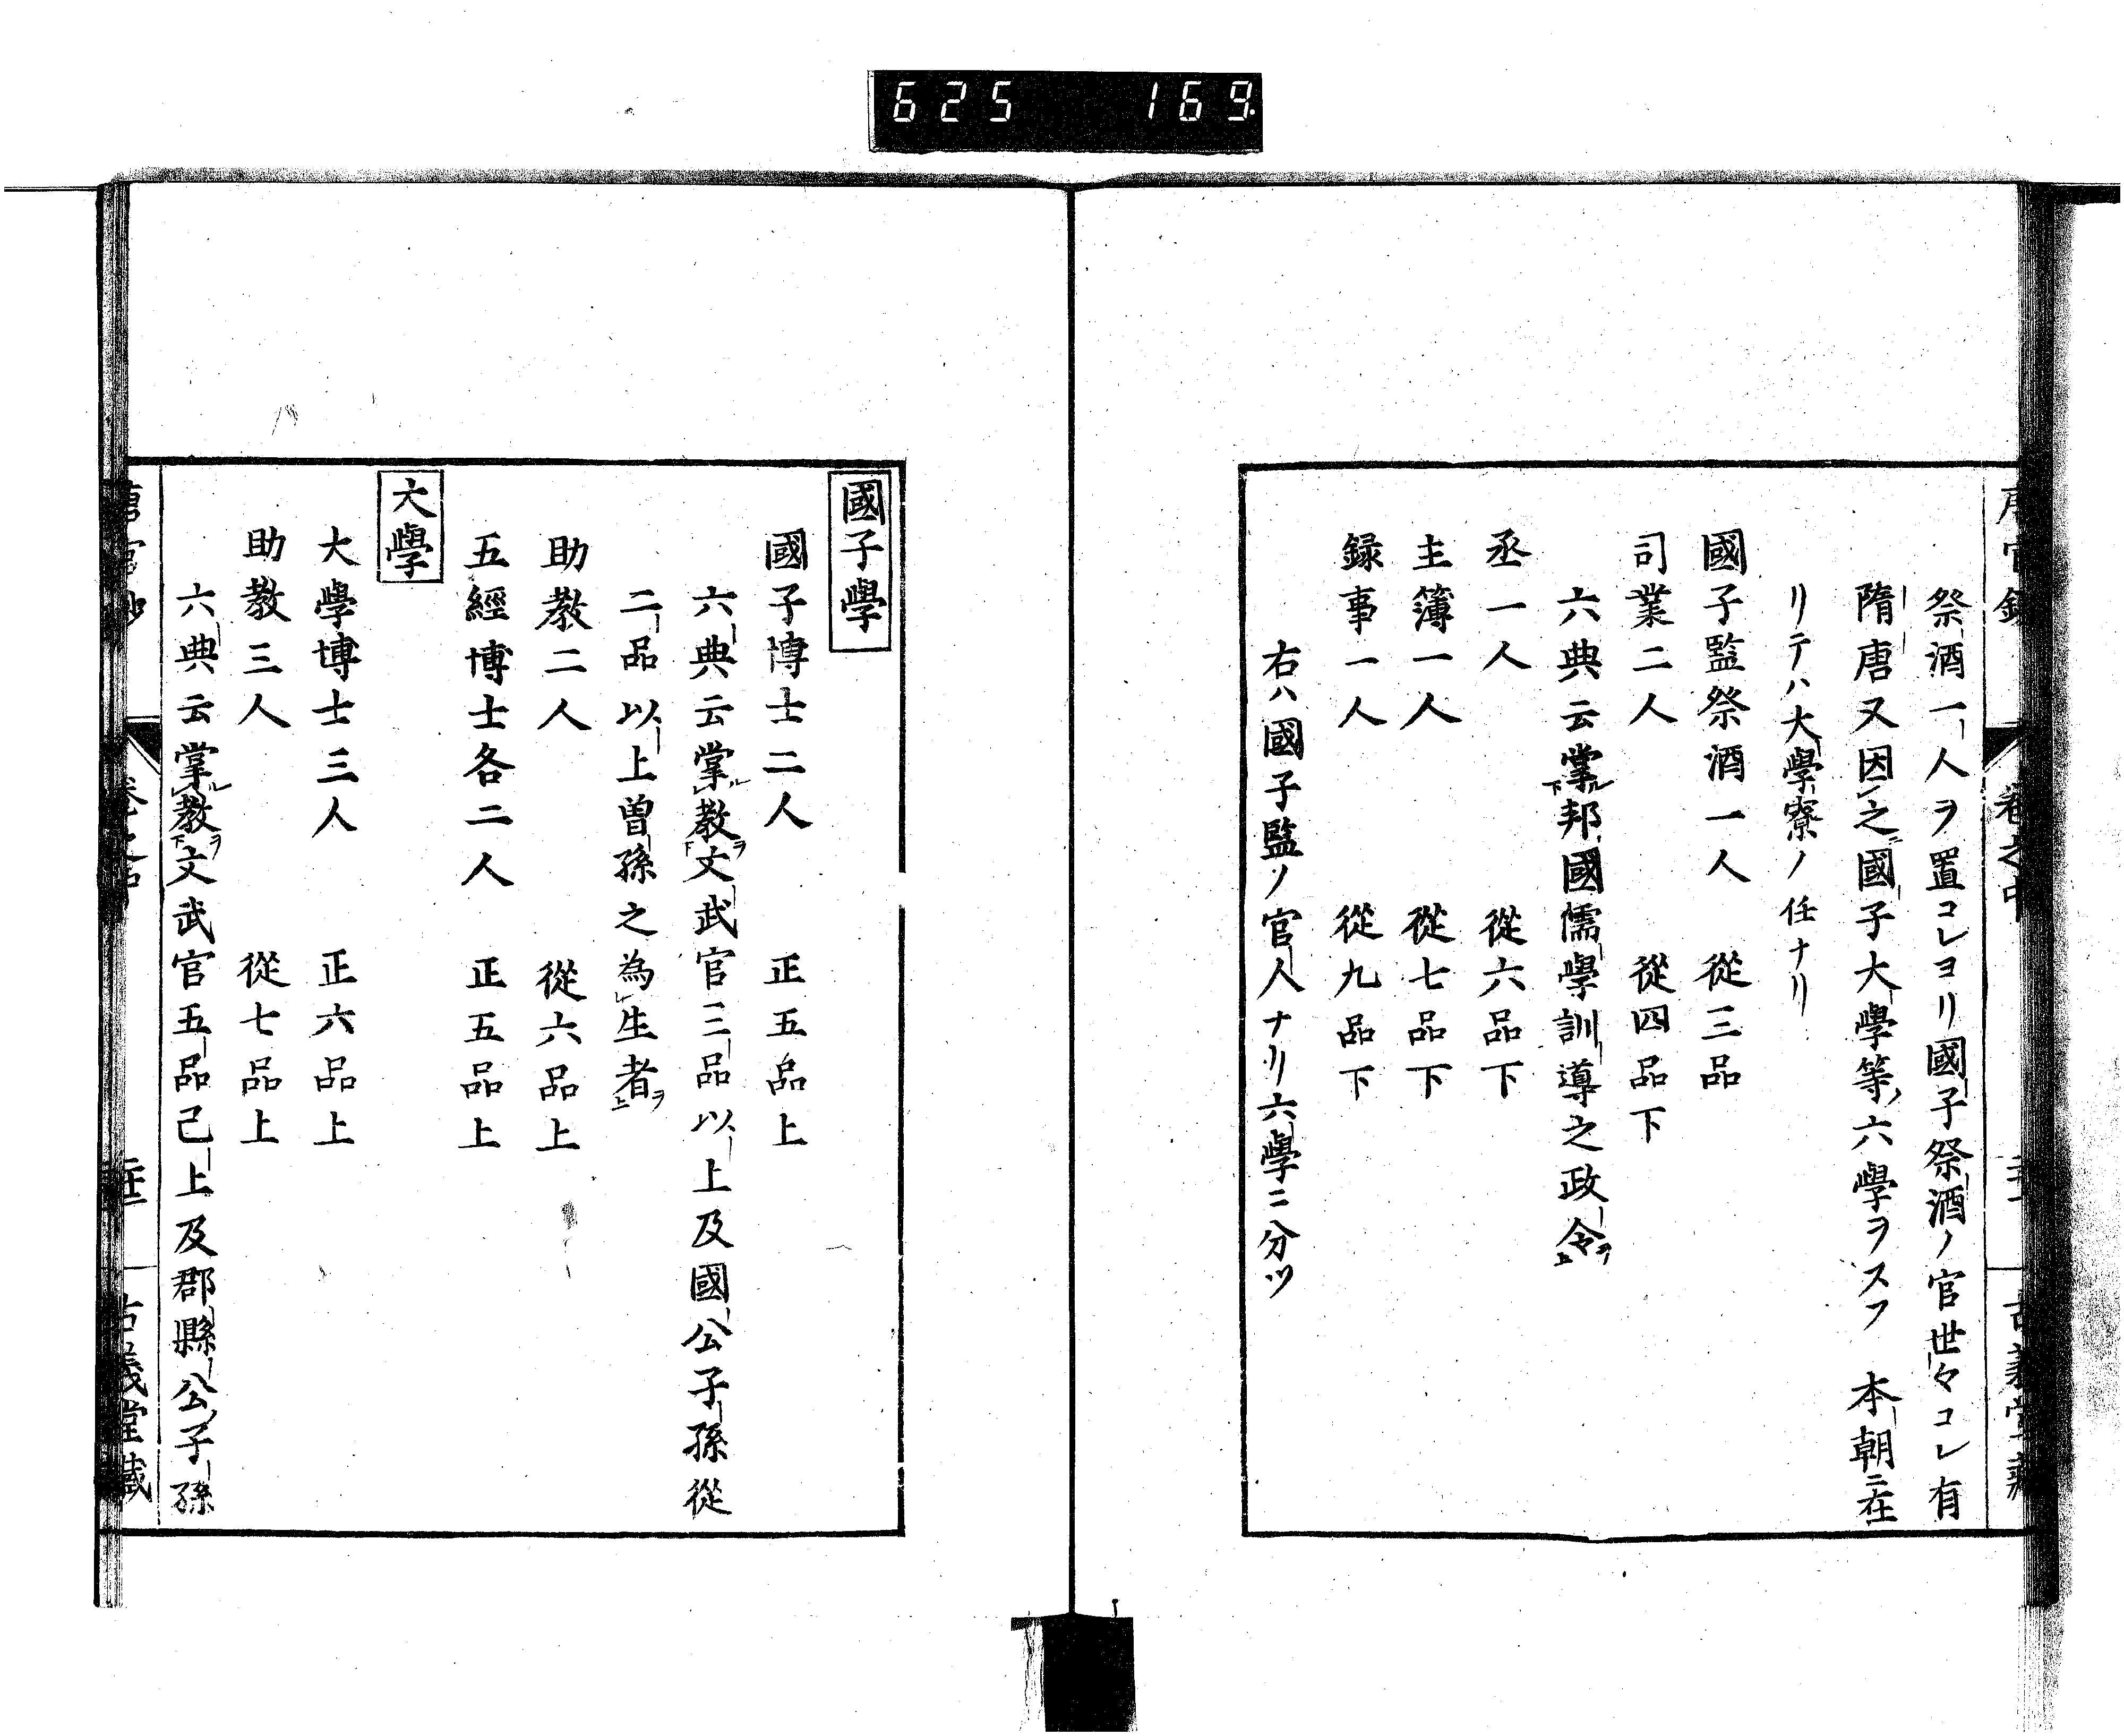 625 169
祭酒一人ヲ置コレヨリ國子祭酒ノ官世々コレ有
隋唐又因之國子大學等ノ六學ヲスフ 本朝ニ在
リテハ大學寮ノ任ナリ
國子監祭酒一人 從三品
司業二人 從四品下
六典云掌ル下邦國儒學訓導之政令ヲ上
丞一人 從六品下
主簿一人 從七品下
録事一人 從九品下
右ハ國子監ノ官人ナリ六學ニ分ツ
國子學
國子博士二人 正五品上
六典云掌ルレ教ヲ下文武官三品以上及國公子孫從
二品以上曽孫之為レ生者ヲ上
助教二人 從六品上
五經博士各二人 正五品上
大學
大學博士三人 正六品上
助教三人 從七品上
六典云掌ルレ教ヲ下文武官五品己上及郡縣公子孫